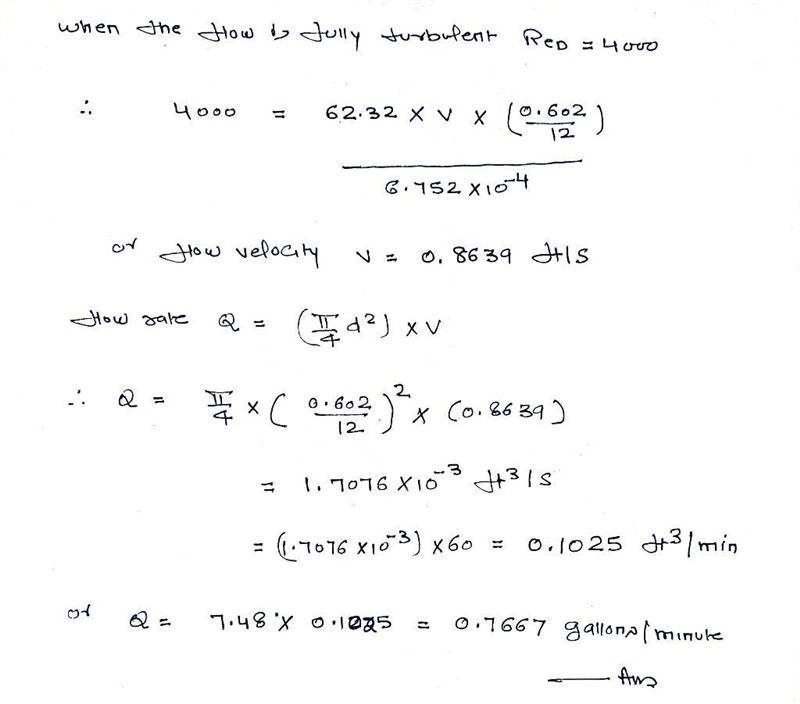 when the flow is fully turbulent Re_D = 4000
∴ 4000 = 62.32 × V × (0.602/12) / 6.752 × 10^-4
or flow velocity V = 0.8639 ft/s
flow rate Q = (π/4 d²) × V
∴ Q = π/4 × (0.602/12)² × (0.8639)
= 1.7076 × 10^-3 ft³/s
= (1.7076 × 10^-3) × 60 = 0.1025 ft³/min
or Q = 7.48 × 0.1025 = 0.7667 gallons/minute
—— Ans